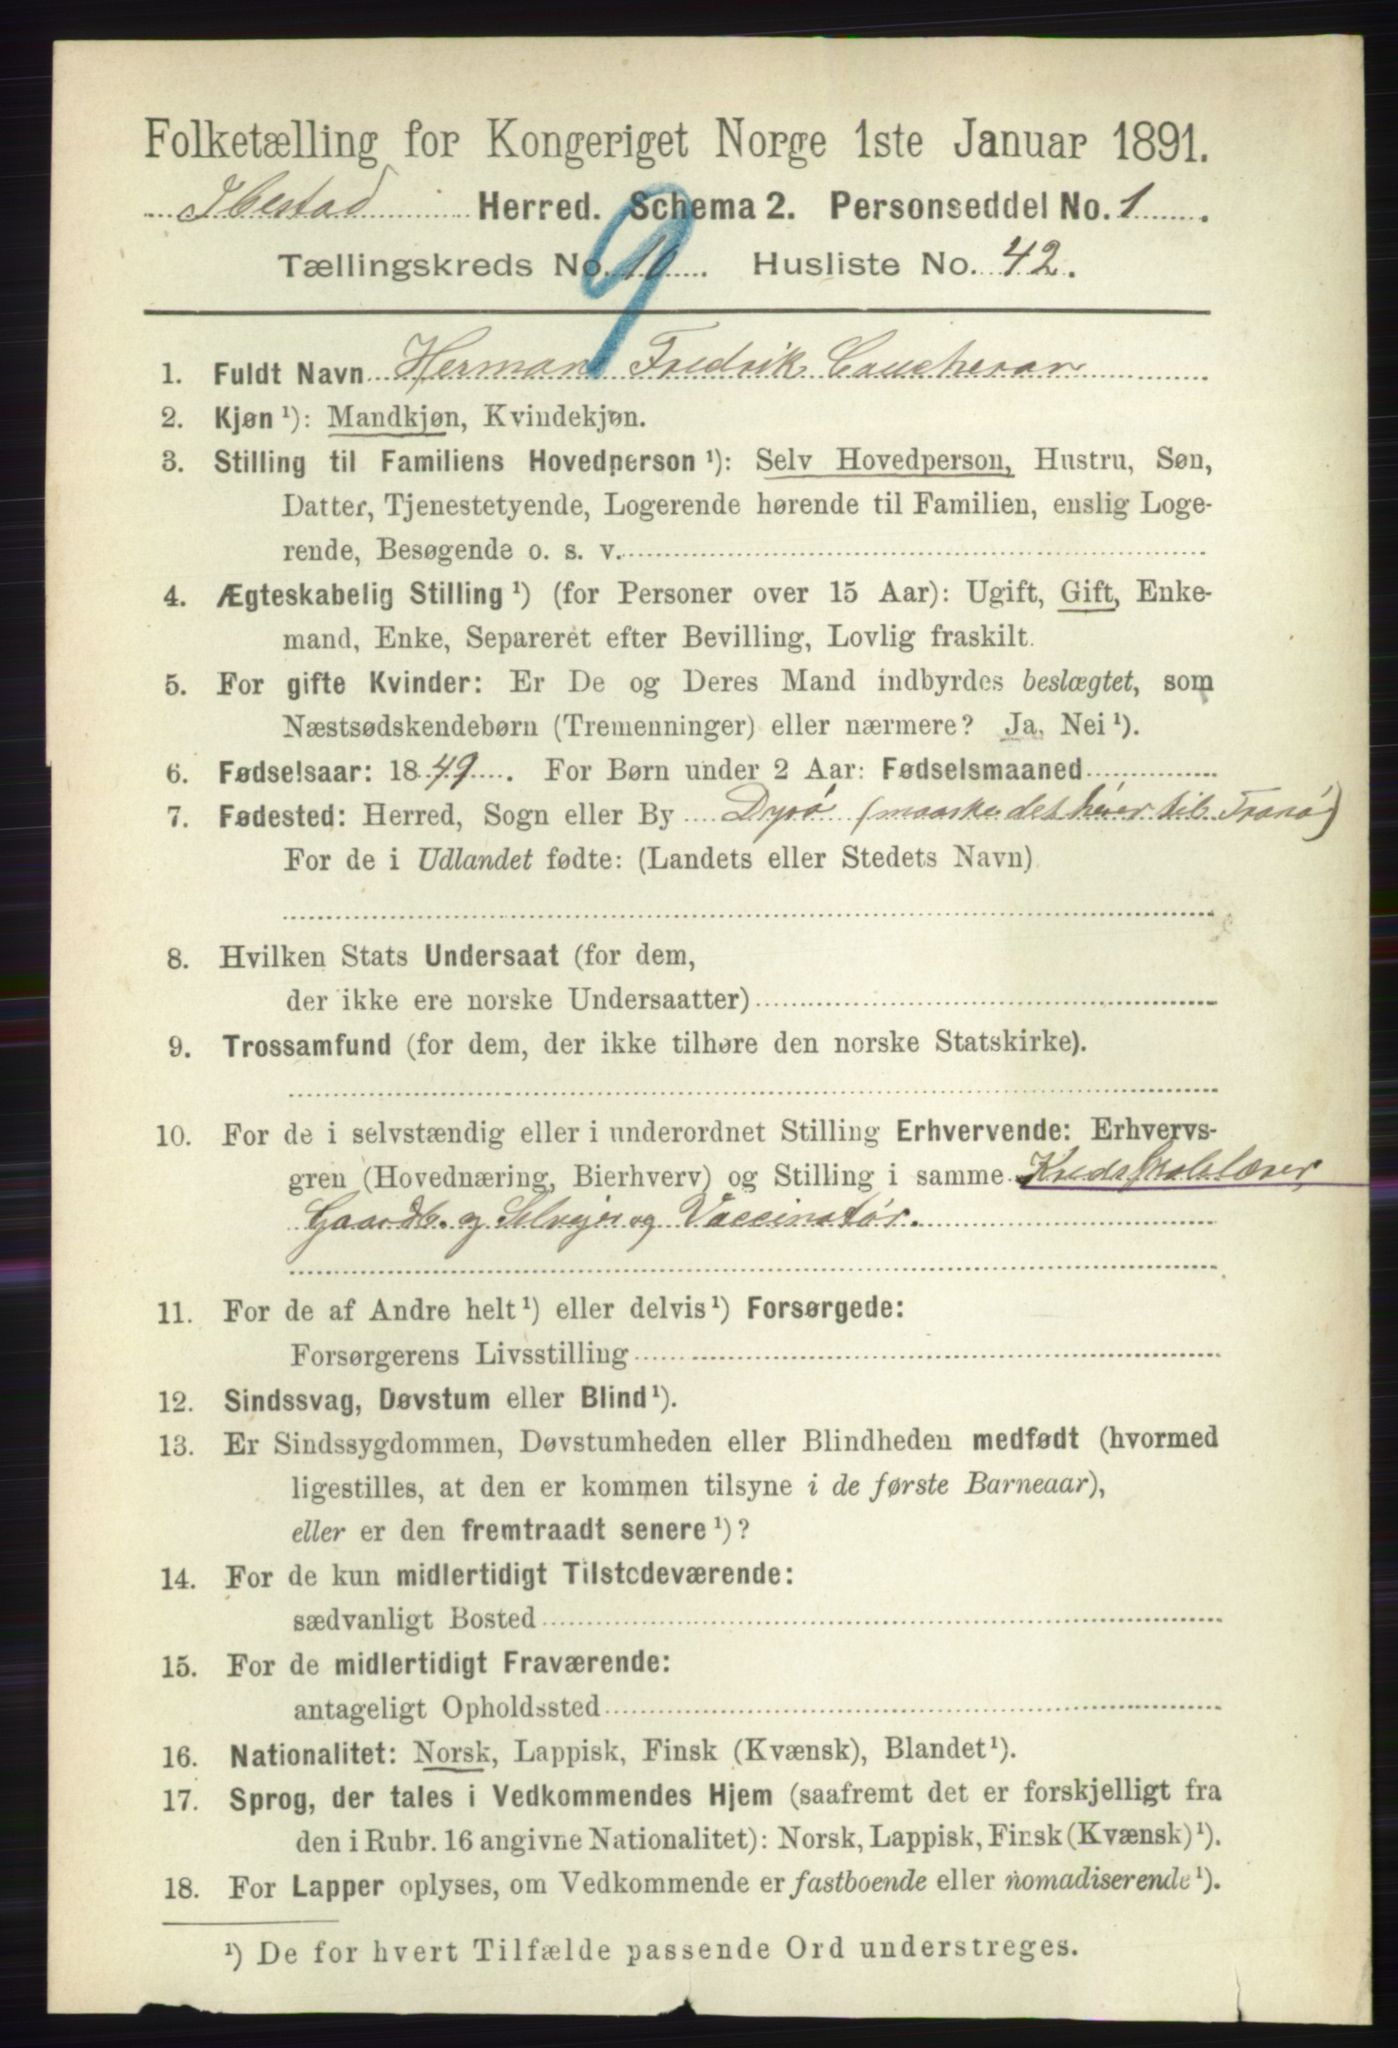 Folketælling for Kongeriget Norge 1ste Januar 1891.
Ibestad Herred. Schema 2. Personseddel No. 1.
9
Tællingskreds No. 10. Husliste No. 42.
1. Fuldt Navn Herman Fredrik Caucheron
2. Kjøn ¹): Mandkjøn, Kvindekjøn.
3. Stilling til Familiens Hovedperson ¹): Selv Hovedperson, Hustru, Søn,
Datter, Tjenestetyende, Logerende hørende til Familien, enslig Loge-
rende, Besøgende o. s. v.
4. Ægteskabelig Stilling ¹) (for Personer over 15 Aar): Ugift, Gift, Enke-
mand, Enke, Separeret efter Bevilling, Lovlig fraskilt.
5. For gifte Kvinder: Er De og Deres Mand indbyrdes beslægtet, som
Næstsødskendebørn (Tremenninger) eller nærmere? Ja, Nei ¹).
6. Fødselsaar: 1849. For Børn under 2 Aar: Fødselsmaaned
7. Fødested: Herred, Sogn eller By Dyrö (maaske det hører til Tranö)
For de i Udlandet fødte: (Landets eller Stedets Navn)
8. Hvilken Stats Undersaat (for dem,
der ikke ere norske Undersaatter)
9. Trossamfund (for dem, der ikke tilhøre den norske Statskirke).
10. For de i selvstændig eller i underordnet Stilling Erhvervende: Erhvervs-
gren (Hovednæring, Bierhverv) og Stilling i samme Kredsskolelærer,
Gaardb. og Selvejer og Vaccinatør.
11. For de af Andre helt ¹) eller delvis ¹) Forsørgede:
Forsørgerens Livsstilling
12. Sindssvag, Døvstum eller Blind ¹).
13. Er Sindssygdommen, Døvstumheden eller Blindheden medfødt (hvormed
ligestilles, at den er kommen tilsyne i de første Barneaar),
eller er den fremtraadt senere ¹)?
14. For de kun midlertidigt Tilstedeværende:
sædvanligt Bosted
15. For de midlertidigt Fraværende:
antageligt Opholdssted
16. Nationalitet: Norsk, Lappisk, Finsk (Kvænsk), Blandet ¹).
17. Sprog, der tales i Vedkommendes Hjem (saafremt det er forskjelligt fra
den i Rubr. 16 angivne Nationalitet): Norsk, Lappisk, Finsk (Kvænsk) ¹).
18. For Lapper oplyses, om Vedkommende er fastboende eller nomadiserende ¹).
¹) De for hvert Tilfælde passende Ord understreges.